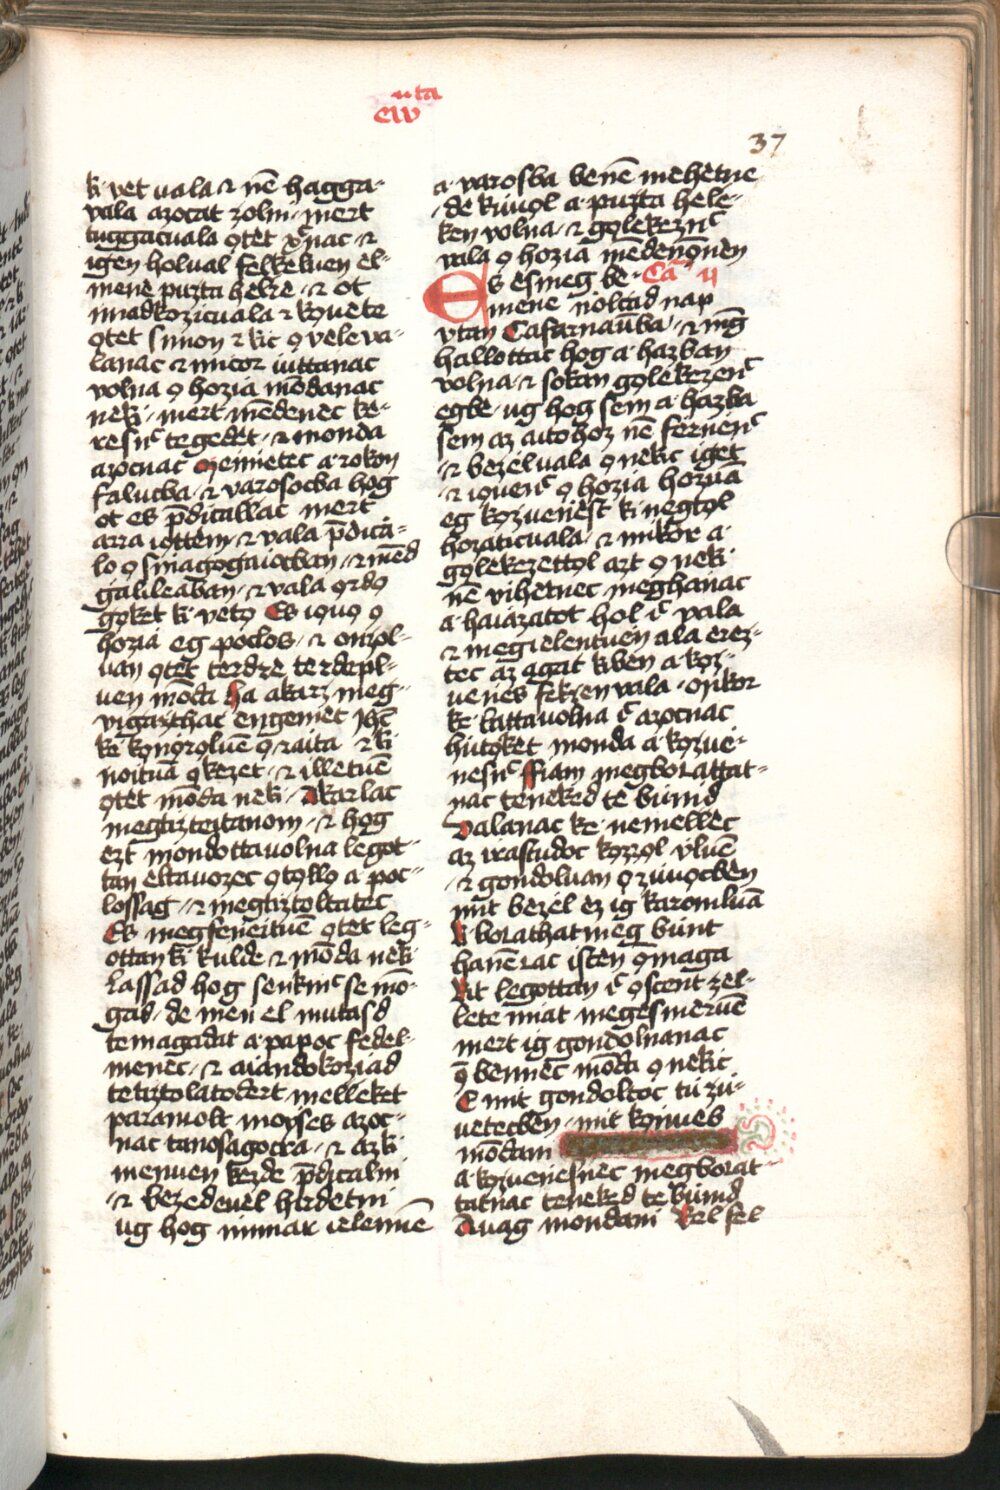 37
ki vèt uala ⁊ nē hagga·
vala azocat zolm· mert
tuggacuala otèt xp̄nac ⁊
igen holual felkeluen el·
mene puzta helre ⁊ ot
imadkozicuala ⁊ kouète
otèt simon ⁊ kic o vele va·
lanac ⁊ micor iuttanac
volna o hozia mōdanac
neki· mert mēdenec ke·
resnc̄ tegedèt ⁊ monda
azocnac Menietec a rokon
falucba ⁊ varosocba hog
ot es p̄dicallac mert
arra iottem ⁊ vala p̄dica·
lo o sinagogaiocban ⁊ mēd
galileaban ⁊ vala ordo
goket ki veto Es iouo o
hozia eg poclos ⁊ onzol·
uan otèt terdre terdepl·
uen mōda Ha akarz meg·
vigazthac engemet Jhc̄
ke konoroluē o raita ⁊ ki
noituā o kezet ⁊ illetuē
otèt mōda neki Akarlac
megtizteitanom ⁊ hog
ezt mondottauolna legot·
tan eltauozec otollo a poc·
lossag ⁊ megtiztoltatec
Es megfeneituē otèt leg·
ottan ki kulde ⁊ mōda neki
Lassad hog senkinc̄ se mō·
gad· de men el mutasd
temagadat a papoc fedel·
menec ⁊ aiandokoziad
te tiztolatodert melleket
paranuolt moyses azoc·
nac tanosagocra ⁊ az ki
menuen kezde p̄dicalni
⁊ bezedeuel hirdetni
ug hog immar ielennē
a varosba bènē mehètne
de kiuuol a puzta hele·
ken volna ⁊ golekeznc̄
vala o hozia mēdenonen
Es esmeg be· Cā ij
mene nolcad nap
vtan Cafarnaūba ⁊ mḡ
hallottac hog a hazban
volna ⁊ sokan golekezenc̄
egbe ug hog sem a hazba
sem az aitohoz nē fernenc̄
⁊ bezeluala o nekic iget
⁊ iouenc̄ o hozia hozuā
eg kozuenest ki negtol
hozaticuala ⁊ mikor a·
golekezettol azt o neki
nē vihètnec meghanac
a haiazatot hol ic̄ vala
⁊ megielentuen ala erez·
tec az agat kiben a koz·
uenes fekzen vala· onkor
ke lattauolna ic̄ azocnac
hutoket monda a kozue·
nesnc̄ Fiam megbolattat·
nac teneked te būnid
Valanac ke nemellec
az irastudoc kozzol vluē
⁊ gondoluan o ziuocben
mit bezel ez ig karomluā
Ki bolathat meg būnt
hanē czac istèn onmaga
Kit legottan ic̄ o scent zel·
lete miat megesmeruē
mert ig gondolnanac
o bennec mōda o nekic
E mit gondoltoc tu zu·
uetecben· mit konueb
mōdam
a kozuenesnec megbolat·
tatnac teneked te būnid
Auag mondani Kel fel